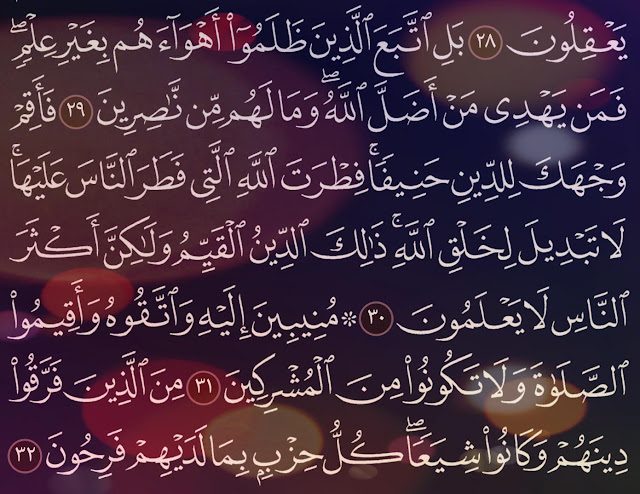 يَعۡقِلُونَ ٢٨ بَلِ ٱتَّبَعَ ٱلَّذِينَ ظَلَمُوٓاْ أَهۡوَآءَهُم بِغَيۡرِ عِلۡمٖۖ
فَمَن يَهۡدِي مَنۡ أَضَلَّ ٱللَّهُۖ وَمَا لَهُم مِّن نَّٰصِرِينَ ٢٩ فَأَقِمۡ
وَجۡهَكَ لِلدِّينِ حَنِيفٗاۚ فِطۡرَتَ ٱللَّهِ ٱلَّتِي فَطَرَ ٱلنَّاسَ عَلَيۡهَاۚ
لَا تَبۡدِيلَ لِخَلۡقِ ٱللَّهِۚ ذَٰلِكَ ٱلدِّينُ ٱلۡقَيِّمُ وَلَٰكِنَّ أَكۡثَرَ
ٱلنَّاسِ لَا يَعۡلَمُونَ ٣٠ ۞ مُنِيبِينَ إِلَيۡهِ وَٱتَّقُوهُ وَأَقِيمُواْ
ٱلصَّلَوٰةَ وَلَا تَكُونُواْ مِنَ ٱلۡمُشۡرِكِينَ ٣١ مِنَ ٱلَّذِينَ فَرَّقُواْ
دِينَهُمۡ وَكَانُواْ شِيَعٗاۖ كُلُّ حِزۡبِۭ بِمَا لَدَيۡهِمۡ فَرِحُونَ ٣٢